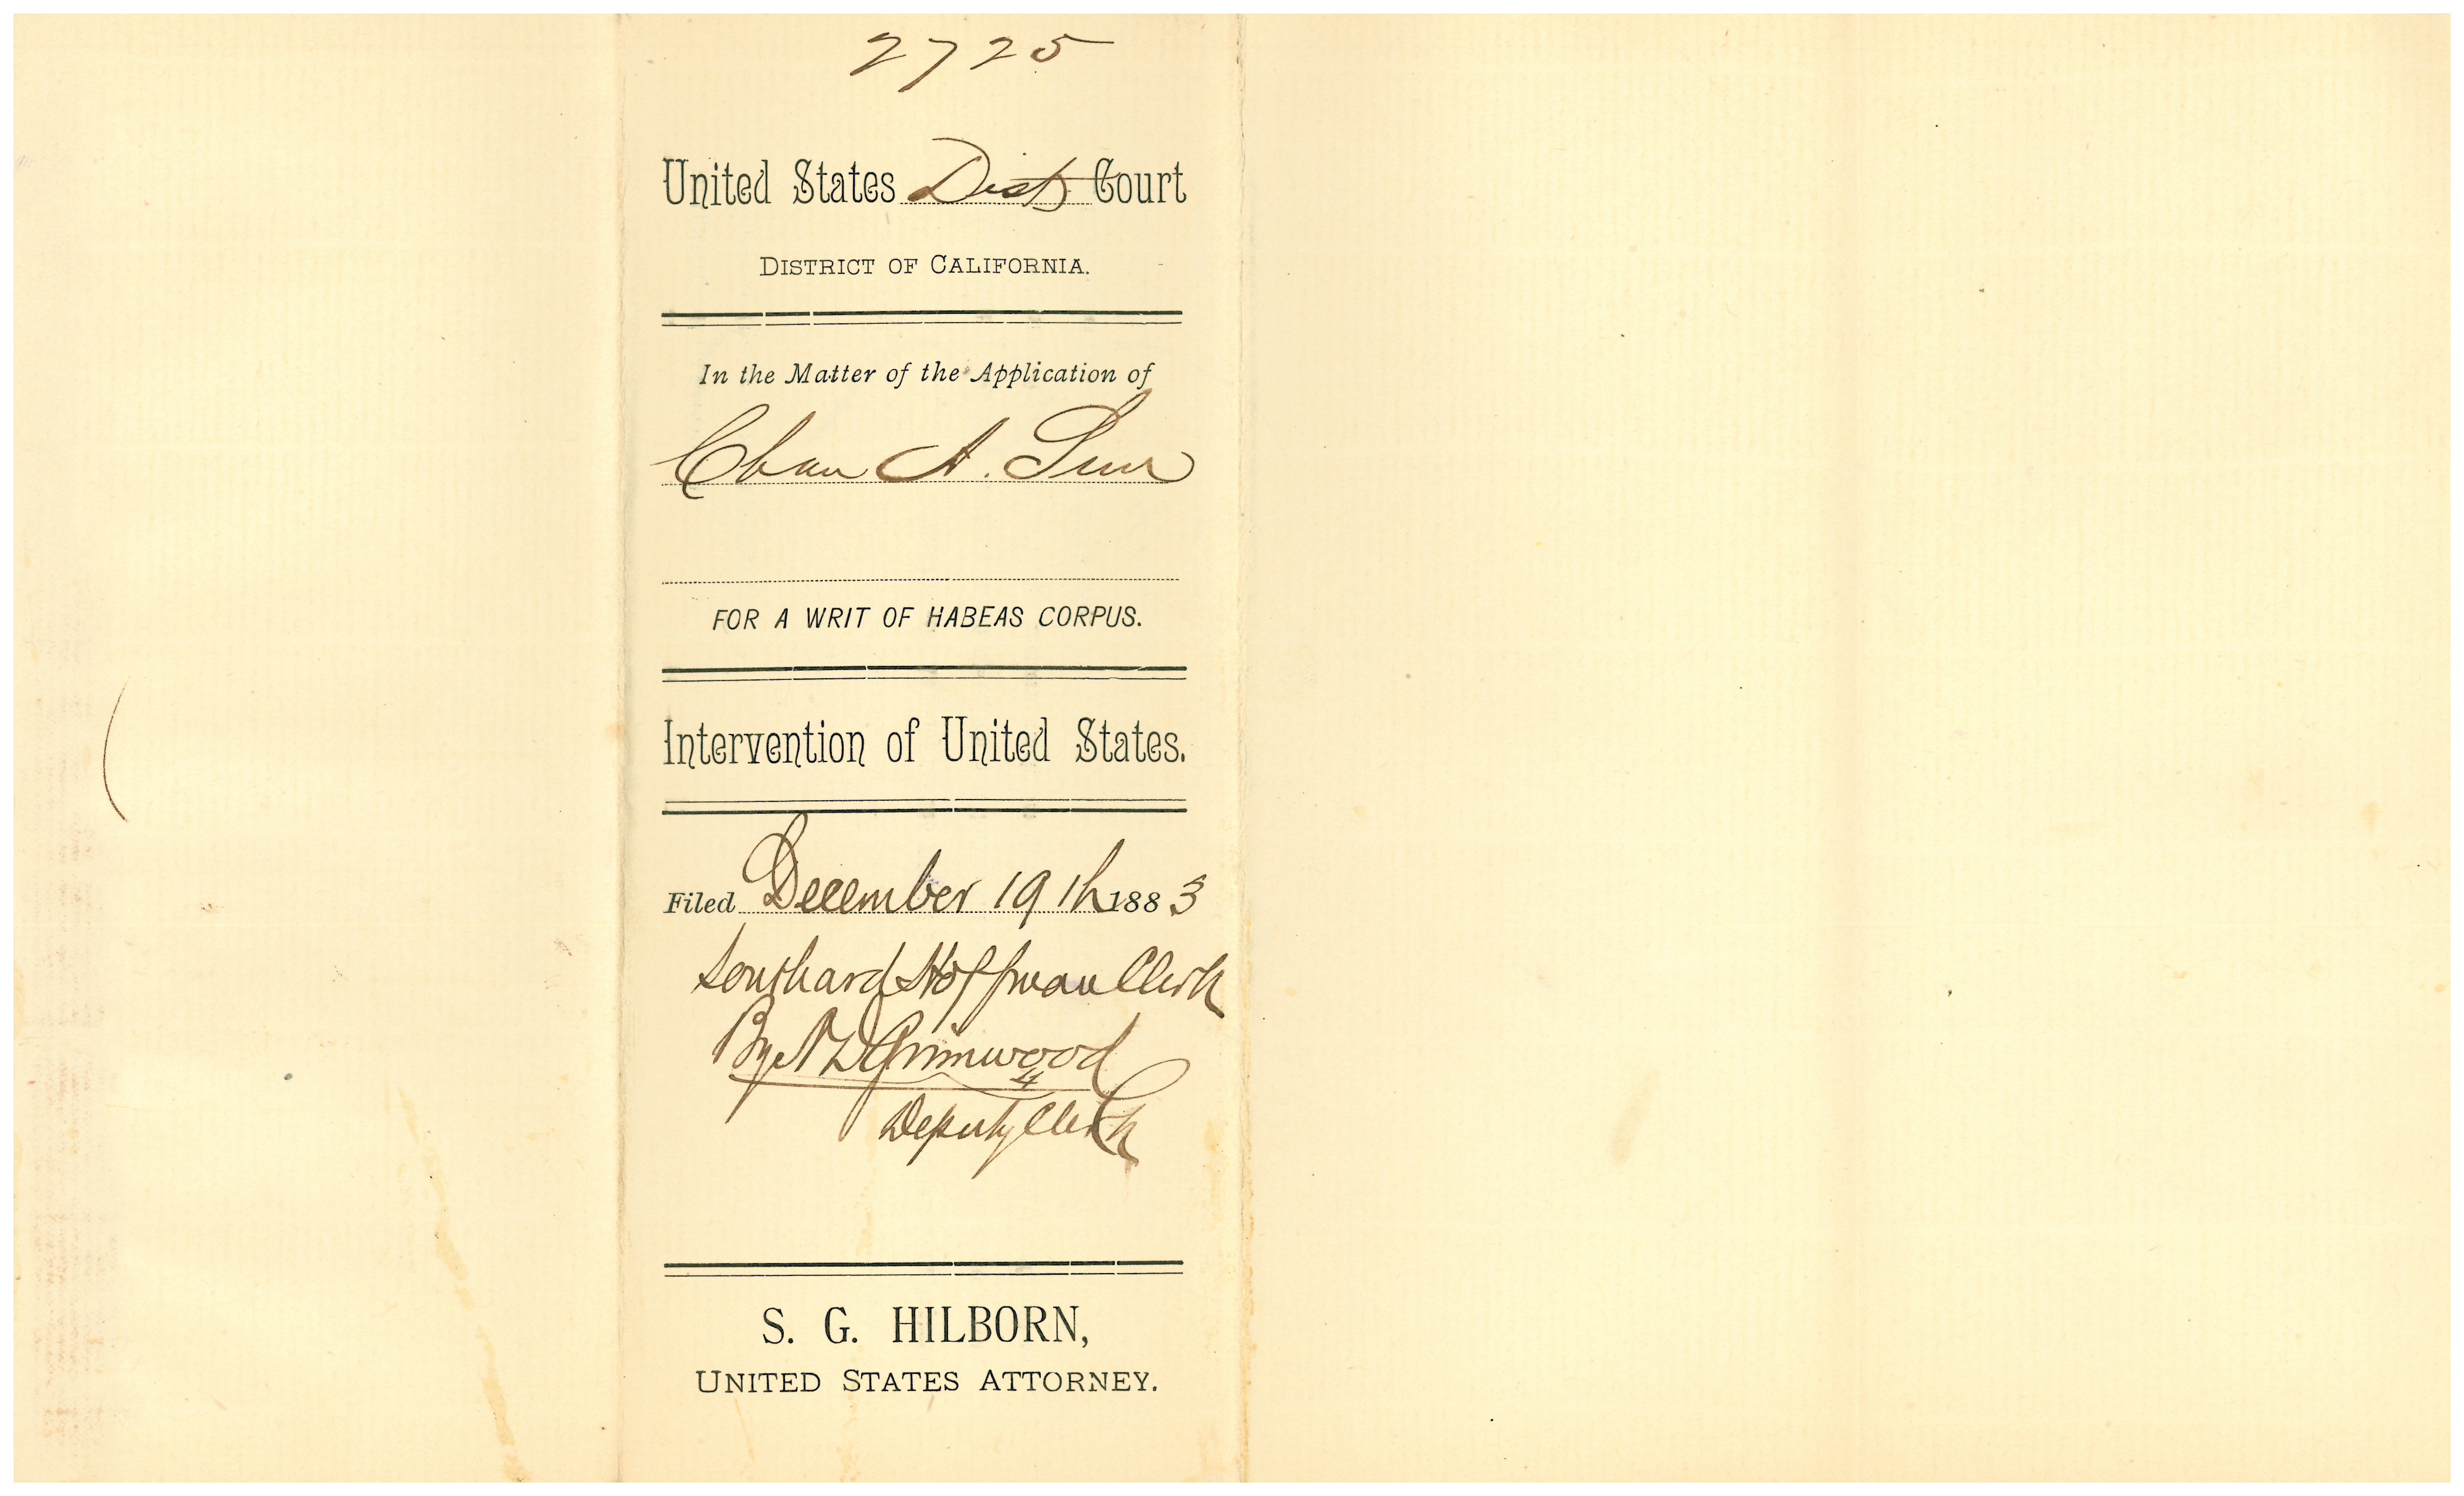 2725
United States Dist Court
DISTRICT OF CALIFORNIA.
In the Matter of the Application of
Chan A.
FOR A WRIT OF HABEAS CORPUS.
Intervention of United States.
Filed December 19th 1883
Southard Hoffman Clerk
By Grimwood
Deputy Clerk
S. G. HILBORN,
UNITED STATES ATTORNEY.